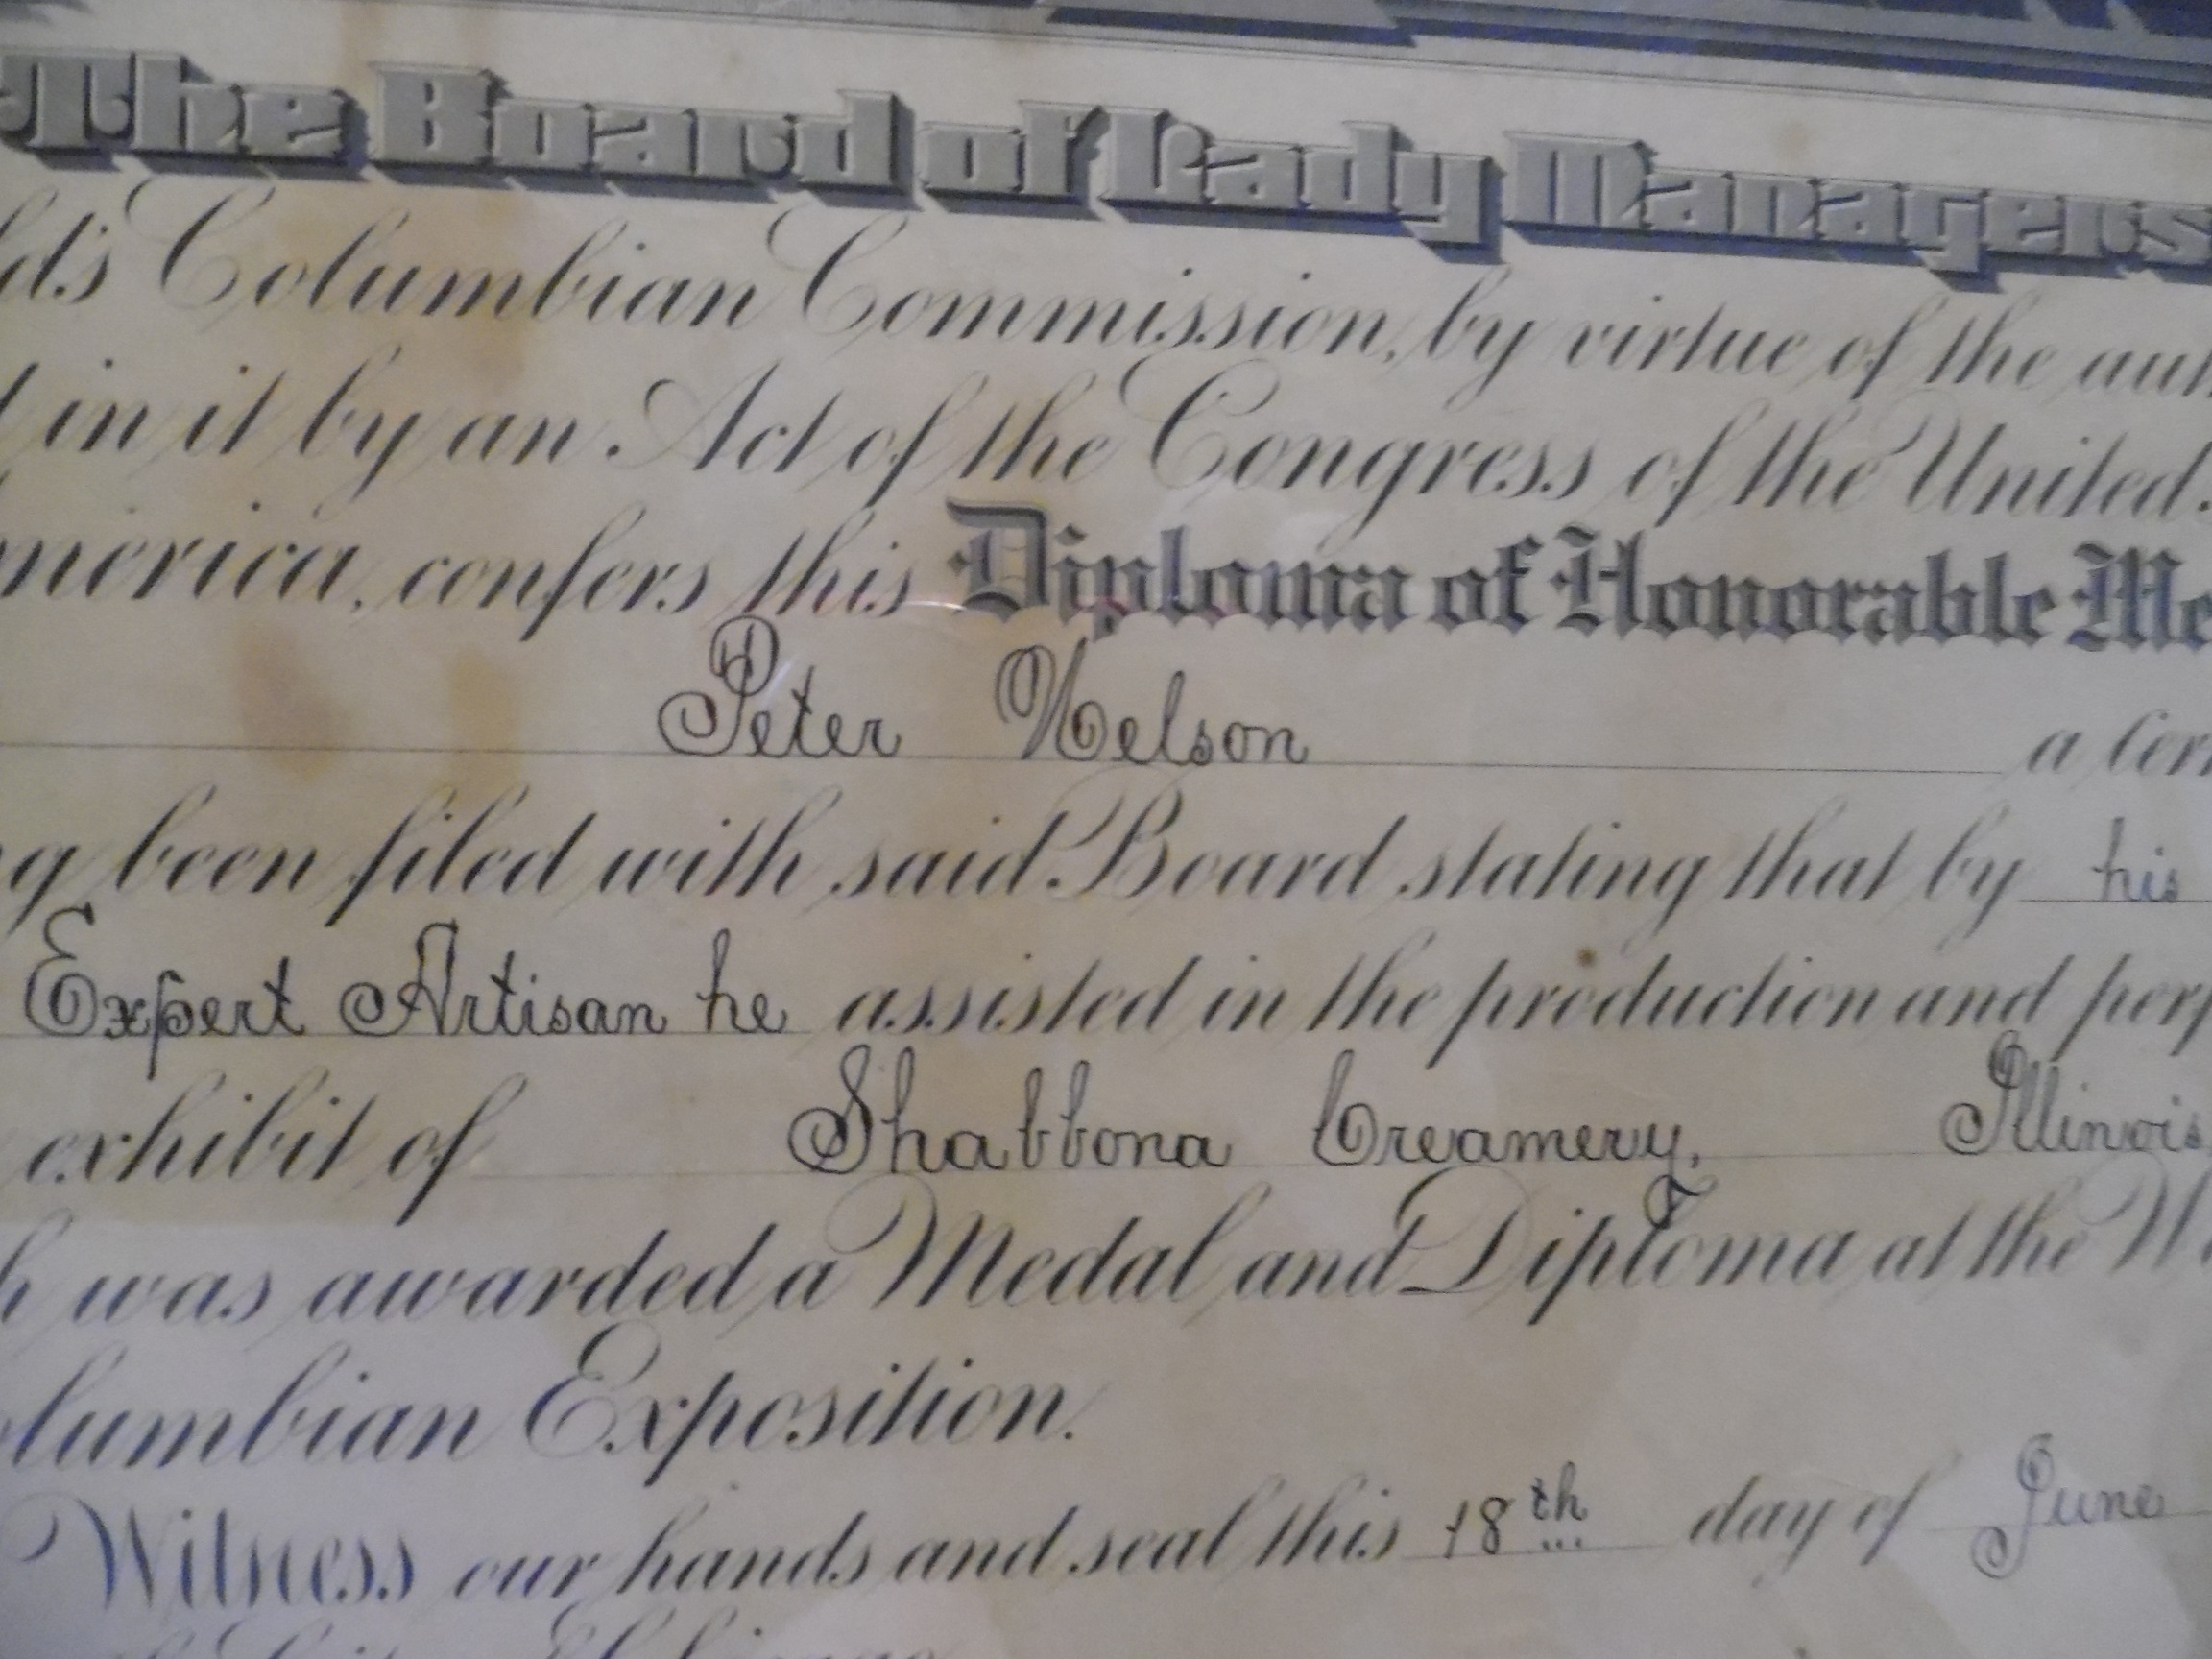 The Board of Lady Managers
ld's Columbian Commission, by virtue of the aut
in it by an Act of the Congress of the United
merica, confers this Diploma of Honorable Me
Peter Nelson a cer
g been filed with said Board stating that by his
Expert Artisan he assisted in the production and perf
exhibit of Shabbona Creamery, Illinois
h was awarded a Medal and Diploma at the W
olumbian Exposition.
Witness our hands and seal this 18th day of June